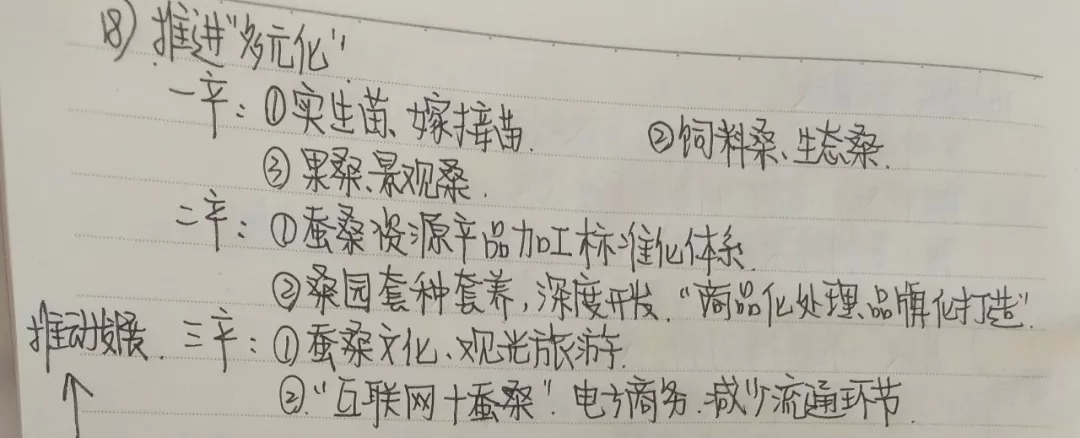 18) 推进"多元化"
一产：①实生苗、嫁接苗. ②饲料桑、生态桑.
③果桑、景观桑.
二产：①蚕桑资源产品加工标准化体系.
②桑园套种套养，深度开发. "商品化处理、品牌化打造".
推动发展. 三产：①蚕桑文化、观光旅游.
②."互联网+蚕桑". 电子商务. 减少流通环节.